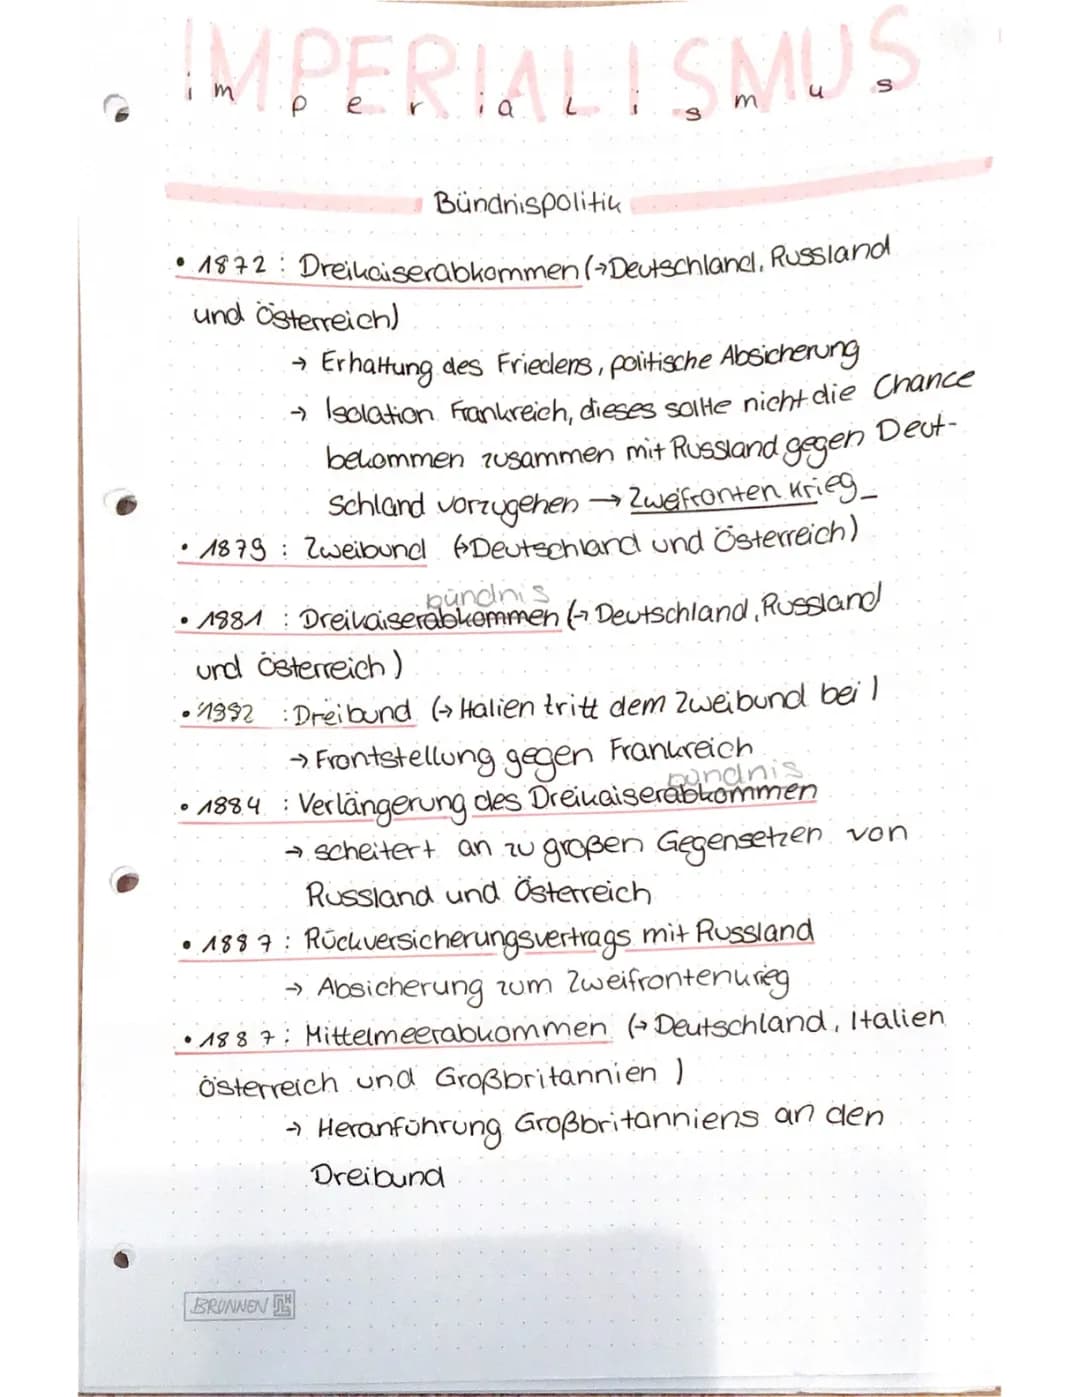 IMPERIALISMUS
imperialismus
Bündnispolitik
• 1872 : Dreikaiserabkommen (→Deutschland, Russland
und Österreich)
→ Erhaltung des Friedens, politische Absicherung
→ Isolation Frankreich, dieses sollte nicht die Chance
bekommen zusammen mit Russland gegen Deut-
schland vorzugehen → Zweifronten Krieg
• 1879 : Zweibund (→Deutschland und Österreich)
bündnis
• 1881 : Dreikaiserabkommen (→ Deutschland, Russland
und Österreich)
• 1882 : Dreibund (→ Italien tritt dem Zweibund bei)
→ Frontstellung gegen Frankreich
bündnis
• 1884 : Verlängerung des Dreikaiserabkommen
→ scheitert an zu großen Gegensetzen von
Russland und Österreich
• 1887 : Rückversicherungsvertrags mit Russland
→ Absicherung zum Zweifrontenkrieg
• 1887 : Mittelmeerabkommen (→ Deutschland, Italien
Österreich und Großbritannien)
→ Heranführung Großbritanniens an den
Dreibund
BRUNNEN